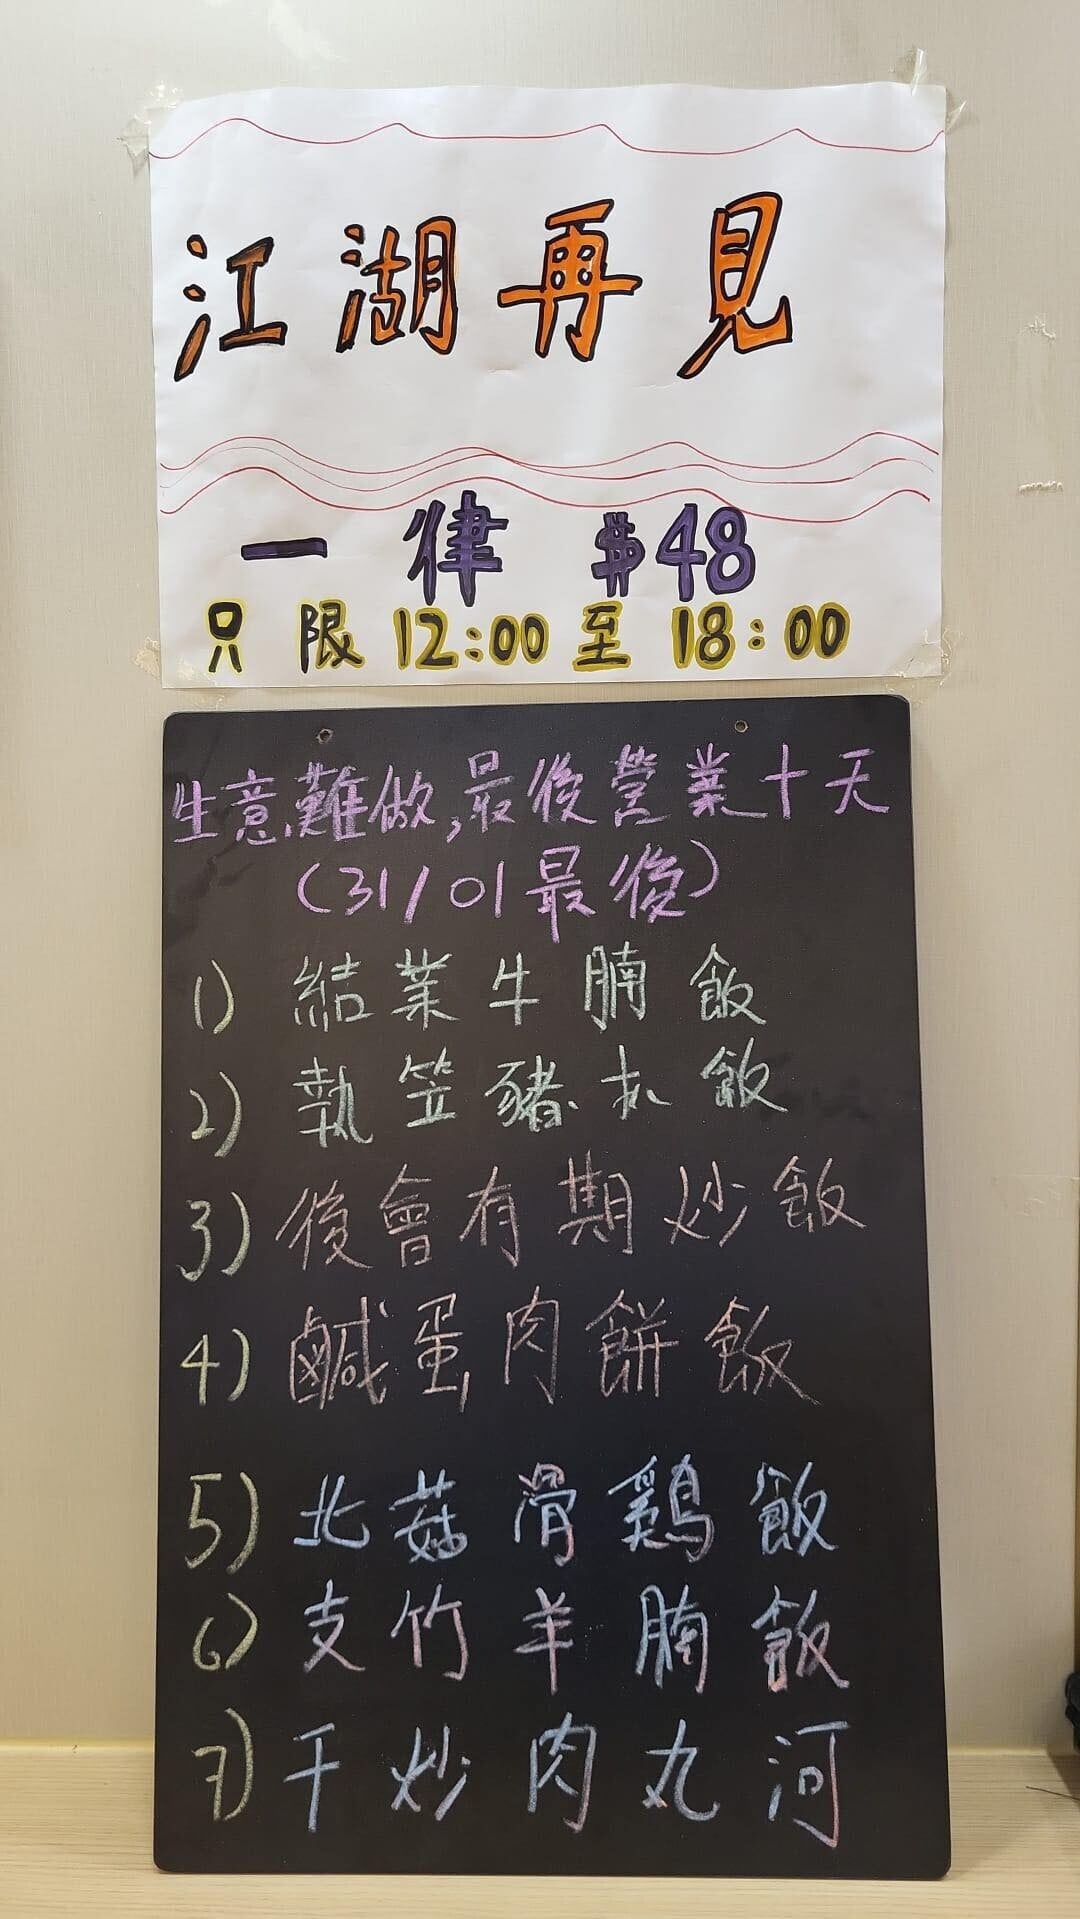 江湖再見
一律 $48
只限 12:00 至 18:00
生意難做,最後營業十天
(31/01最後)
1) 結業牛腩飯
2) 執笠豬扒飯
3) 後會有期炒飯
4) 鹹蛋肉餅飯
5) 北菇滑鷄飯
6) 支竹羊腩飯
7) 干炒肉丸河